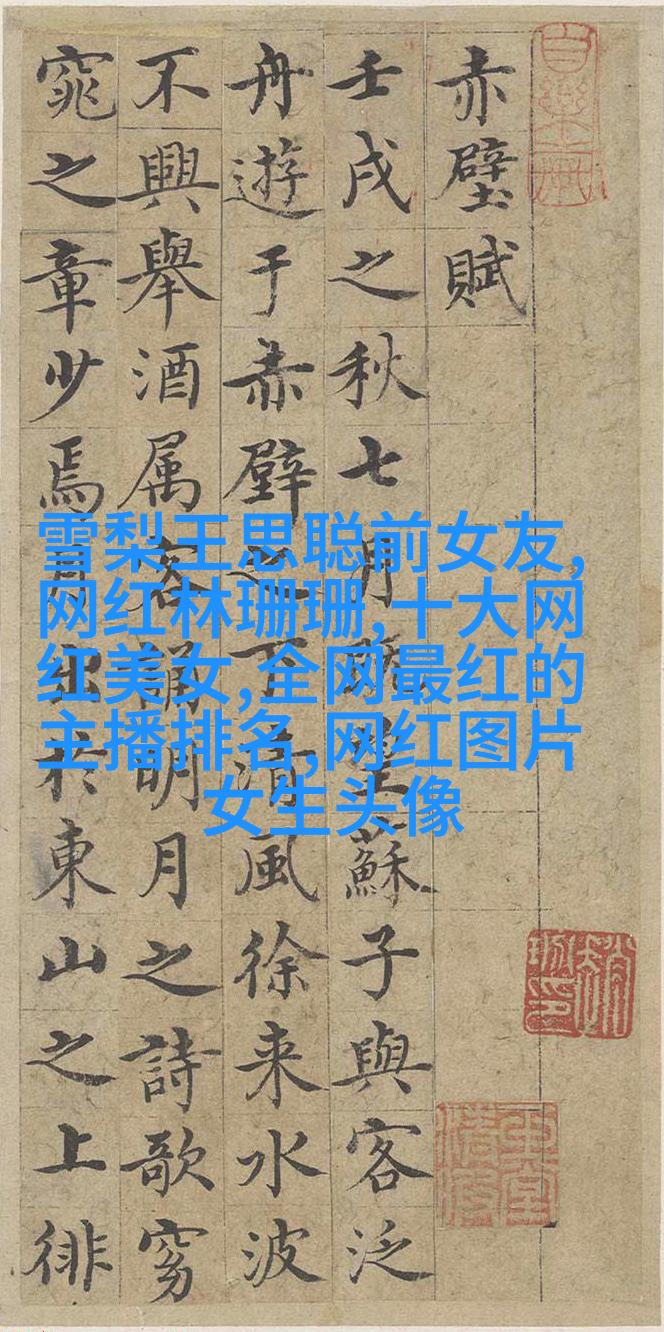 赤壁賦
壬戌之秋七月既望蘇子與客泛
舟遊于赤壁之下清風徐来水波
不興舉酒属客誦明月之詩歌窈
窕之章少焉月出於東山之上徘
雪梨王思聪前女友,
网红林珊珊,十大网
红美女,全网最红的
主播排名,网红图片
女生头像